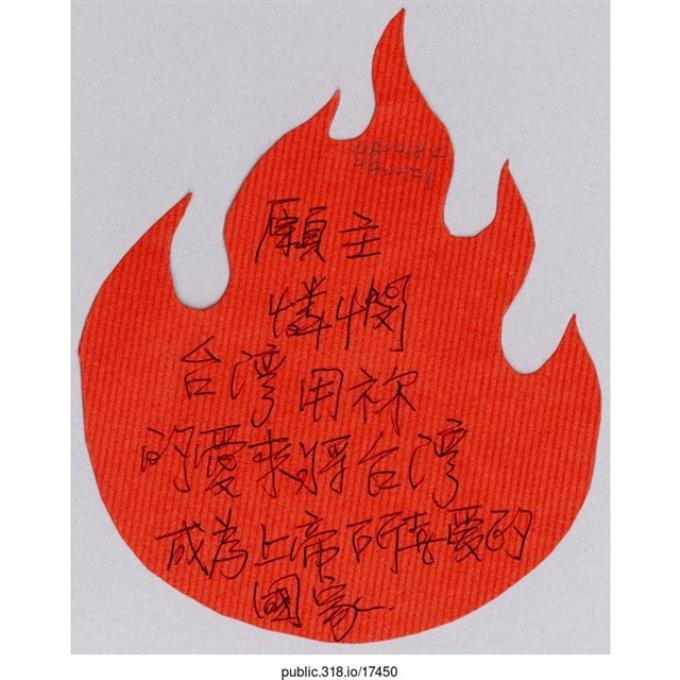 願主
憐憫
台湾用祢
的愛來將台湾
成為上帝所喜愛的
國家.
public.318.io/17450